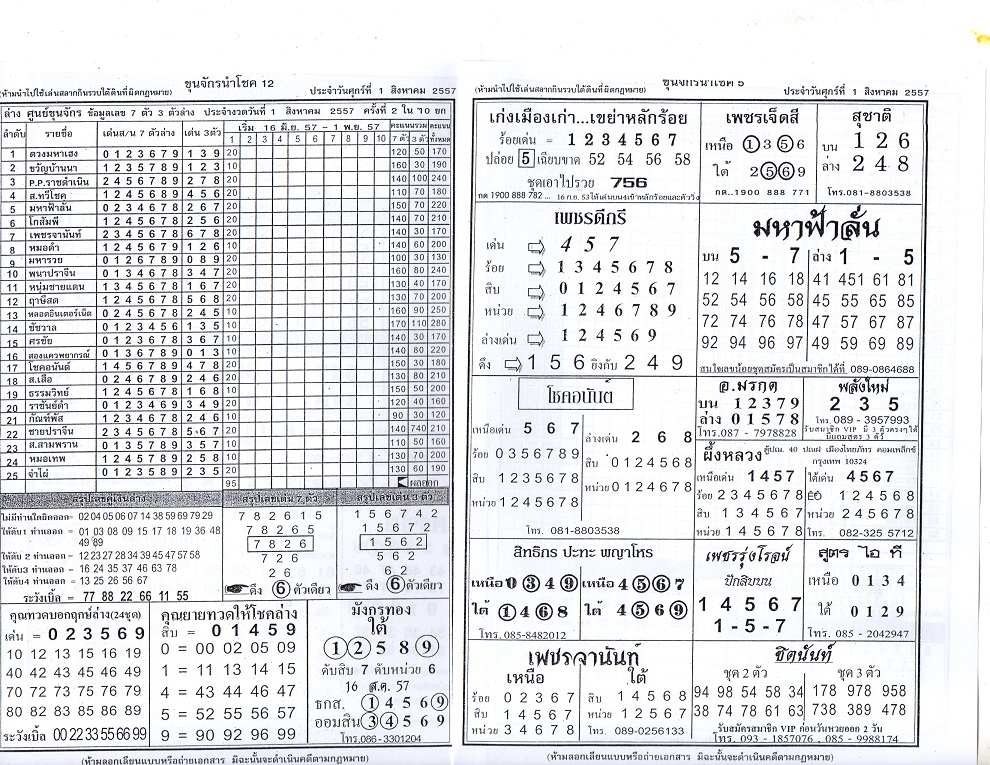 ขุนจักรนำโชค 12
(ห้ามนำไปใช้เล่นสลากกินรวบใต้ดินที่ผิดกฎหมาย) ประจำวันศุกร์ที่ 1 สิงหาคม 2557
ล่าง ศูนย์ขุนจักร ข้อมูลเลข 7 ตัว 3 ตัวล่าง ประจำงวดวันที่ 1 สิงหาคม 2557 ครั้งที่ 2 ใน 10 ยก
ลำดับ รายชื่อ เด่นส/น 7 ตัวล่าง เด่น 3ตัว เริ่ม 16 มิ.ย. 57 – 1 พ.ย. 57 คะแนนรวม คะแนน
1 2 3 4 5 6 7 8 9 10 7 ตัว 3 ตัว ทั้งหมด
1 ดวงมหาเฮง 0 1 2 3 6 7 9 1 3 9 20 120 50 170
2 ขวัญบ้านนา 1 2 3 5 7 8 9 1 2 3 10 160 30 190
3 P.P.ราชดำเนิน 2 4 5 6 7 8 9 2 7 8 20 140 100 240
4 ส.ทวีโชค 1 2 4 5 6 8 9 4 5 6 20 110 70 180
5 มหาฟ้าลั่น 0 2 3 4 6 7 8 2 6 7 20 150 70 220
6 โกสัมพี 1 2 4 5 6 7 8 2 5 6 20 140 70 210
7 เพชรจานันท์ 2 3 4 5 6 7 8 6 7 8 20 140 30 170
8 หมอดำ 1 2 4 5 6 7 9 1 2 6 10 140 60 200
9 มหารวย 0 1 2 6 7 8 9 0 8 9 20 100 30 130
10 พนาปราจีน 0 1 3 4 6 7 8 3 4 7 20 160 80 240
11 หนุ่มชายแดน 1 3 4 5 6 7 8 1 6 7 20 130 40 170
12 ฤาษีสด 1 2 4 5 6 7 8 5 6 8 20 130 70 200
13 หลอดอินเตอร์เน็ต 0 2 4 5 6 7 8 2 4 5 10 160 90 250
14 ชัชวาล 0 1 2 3 4 5 6 1 3 5 10 170 110 280
15 ศรชัย 0 1 2 3 6 7 8 3 6 7 20 140 30 170
16 สองแควพยากรณ์ 0 1 3 6 7 8 9 0 1 3 10 140 80 220
17 โชคอนันต์ 1 4 5 6 7 8 9 4 7 8 20 150 30 180
18 ส.เสือ 0 2 4 6 7 8 9 2 4 6 20 130 80 210
19 ธรรมวิทย์ 1 2 4 5 6 7 8 1 6 8 20 150 50 200
20 ราชันย์ดำ 0 1 2 3 4 6 9 3 4 9 20 120 40 160
21 กัณฑ์พัส 1 2 3 4 6 7 8 2 4 6 10 90 30 120
22 ชายปราจีน 2 3 4 5 6 7 8 5 6 7 20 140 740 210
23 ส.สามพราน 0 1 3 5 7 8 9 3 5 7 10 110 50 160
24 หมอเทพ 1 2 3 4 7 8 9 2 5 8 20 130 70 200
25 จำไผ่ 0 1 2 3 5 8 9 2 3 5 20 130 60 190
95 ผลออก
สรุปเลขคู่เงินล่าง
ไม่มีท่านใดเลือกออก= 02 04 05 06 07 14 38 59 69 79 29
ให้ดับ1 ท่านออก = 01 03 08 09 15 17 18 19 36 48
49 89
ให้ดับ 2 ท่านออก = 12 23 27 28 34 39 45 47 57 58
ให้ดับ3 ท่านออก = 16 24 35 37 46 63 78
ให้ดับ4 ท่านออก = 13 25 26 56 67
ระวังเบิ้ล = 77 88 22 66 11 55
สรุปเลขเด่น 7 ตัว
7 8 2 6 1 5
7 8 2 6 5
7 8 2 6
7 2 6
2 6
ดึง 6 ตัวเดียว
สรุปเลขเด่น 3 ตัว
1 5 6 7 4 2
1 5 6 7 2
1 5 6 2
5 6 2
6 2
ดึง 6 ตัวเดียว
คุณทวดบอกฤกษ์ล่าง(24ชุด)
เด่น = 0 2 3 5 6 9
10 12 13 15 16 19
40 42 43 45 46 49
70 72 73 75 76 79
80 82 83 85 86 89
ระวังเบิ้ล 00 22 33 55 66 99
คุณยายทวดให้โชคล่าง
สิบ = 0 1 4 5 9
0 = 00 02 05 09
1 = 11 13 14 15
4 = 43 44 46 47
5 = 52 55 56 57
9 = 90 92 96 99
มังกรทอง
ใต้
1 2 5 8 9
ดับสิบ 7 ดับหน่วย 6
16 ส.ค. 57
ธกส. 1 4 5 6 9
ออมสิน 3 4 5 6 9
โทร.086-3301204
(ห้ามลอกเลียนแบบหรือถ่ายเอกสาร มิฉะนั้นจะดำเนินคดีตามกฎหมาย)
ขุนจักรนำโชค 5
(ห้ามนำไปใช้เล่นสลากกินรวบใต้ดินที่ผิดกฎหมาย) ประจำวันศุกร์ที่ 1 สิงหาคม 2557
เก่งเมืองเก่า...เขย่าหลักร้อย
ร้อยเด่น = 1 2 3 4 5 6 7
ปล่อย 5 เฉียบขาด 52 54 56 58
ชุดเอาไปรวย 756
กด 1900 888 782 ... 16 ก.ย. 53ให้เด่นบน4เข้าหลักร้อยและตัววิ่ง
เพชรเจ็ดสี
เหนือ 1 3 5 6
ใต้ 2 5 6 9
กด..1900 888 771
สุชาติ
บน 1 2 6
ล่าง 2 4 8
โทร.081-8803538
เพชรดีกรี
เด่น 4 5 7
ร้อย 1 3 4 5 6 7 8
สิบ 0 1 2 4 5 6 7
หน่วย 1 2 4 6 7 8 9
ล่างเด่น 1 2 4 5 6 9
ดึง 1 5 6 ยิงกับ 2 4 9
มหาฟ้าลั่น
บน 5 - 7 ล่าง 1 - 5
12 14 16 18 41 451 61 81
52 54 56 58 45 55 65 85
72 74 76 78 47 57 67 87
92 94 96 97 49 59 69 89
สนใจเลขน้อยชุดสมัครเป็นสมาชิกได้ที่ 089-0864688
โชคอนันต์
เหนือเด่น 5 6 7
ร้อย 0 3 5 6 7 8 9
สิบ 1 2 3 5 6 7 8
หน่วย 1 2 4 5 6 7 8
ล่างเด่น 2 6 8
สิบ 0 1 2 4 5 6 8
หน่วย 0 1 2 4 6 7 8
โทร. 081-8803538
อ.มรกต
บน 1 2 3 7 9
ล่าง 0 1 5 7 8
โทร.087 - 7978828
พลังใหม่
2 3 5
โทร.089 - 3957993
รับสมาชิก VIP มี 3 ตัวตรงๆได้
ผึ้งหลวง
กรุงเทพ 10324
เหนือเด่น 1 4 5 7
ร้อย 2 3 4 5 6 7 8
สิบ 1 3 4 5 6 7
หน่วย 1 4 5 6 7 8
ใต้เด่น 4 5 6 7
1 2 4 5 6 8
หน่วย 2 4 5 6 7 8
โทร. 082-325 5712
สิทธิกร ปะทะ พญาโหร
เหนือ 0 3 4 9
ใต้ 1 4 6 8
โทร.085-8482012
เหนือ 4 5 6 7
ใต้ 4 5 6 9
เพชรรุ่งโรจน์
ปักสิบบน
1 4 5 6 7
1 - 5 - 7
สูตร ไอ ที
เหนือ 0 1 3 4
ใต้ 0 1 2 9
โทร. 085 - 2042947
เพชรจานันท์
เหนือ
ร้อย 0 2 3 6 7
สิบ 1 4 5 6 7
หน่วย 3 4 6 7 8
ใต้
สิบ 1 4 5 6 8
หน่วย 1 2 5 6 7
โทร. 089-0256133
ชิตนันท์
ชุด 2 ตัว ชุด 3 ตัว
94 98 54 58 34 178 978 958
38 74 78 61 63 738 389 478
รับสมัครสมาชิก VIP ก่อนวันหวยออก 2 วัน
โทร. 093 - 1857076 , 085 - 9988174
(ห้ามลอกเลียนแบบหรือถ่ายเอกสาร มิฉะนั้นจะดำเนินคดีตามกฎหมาย)